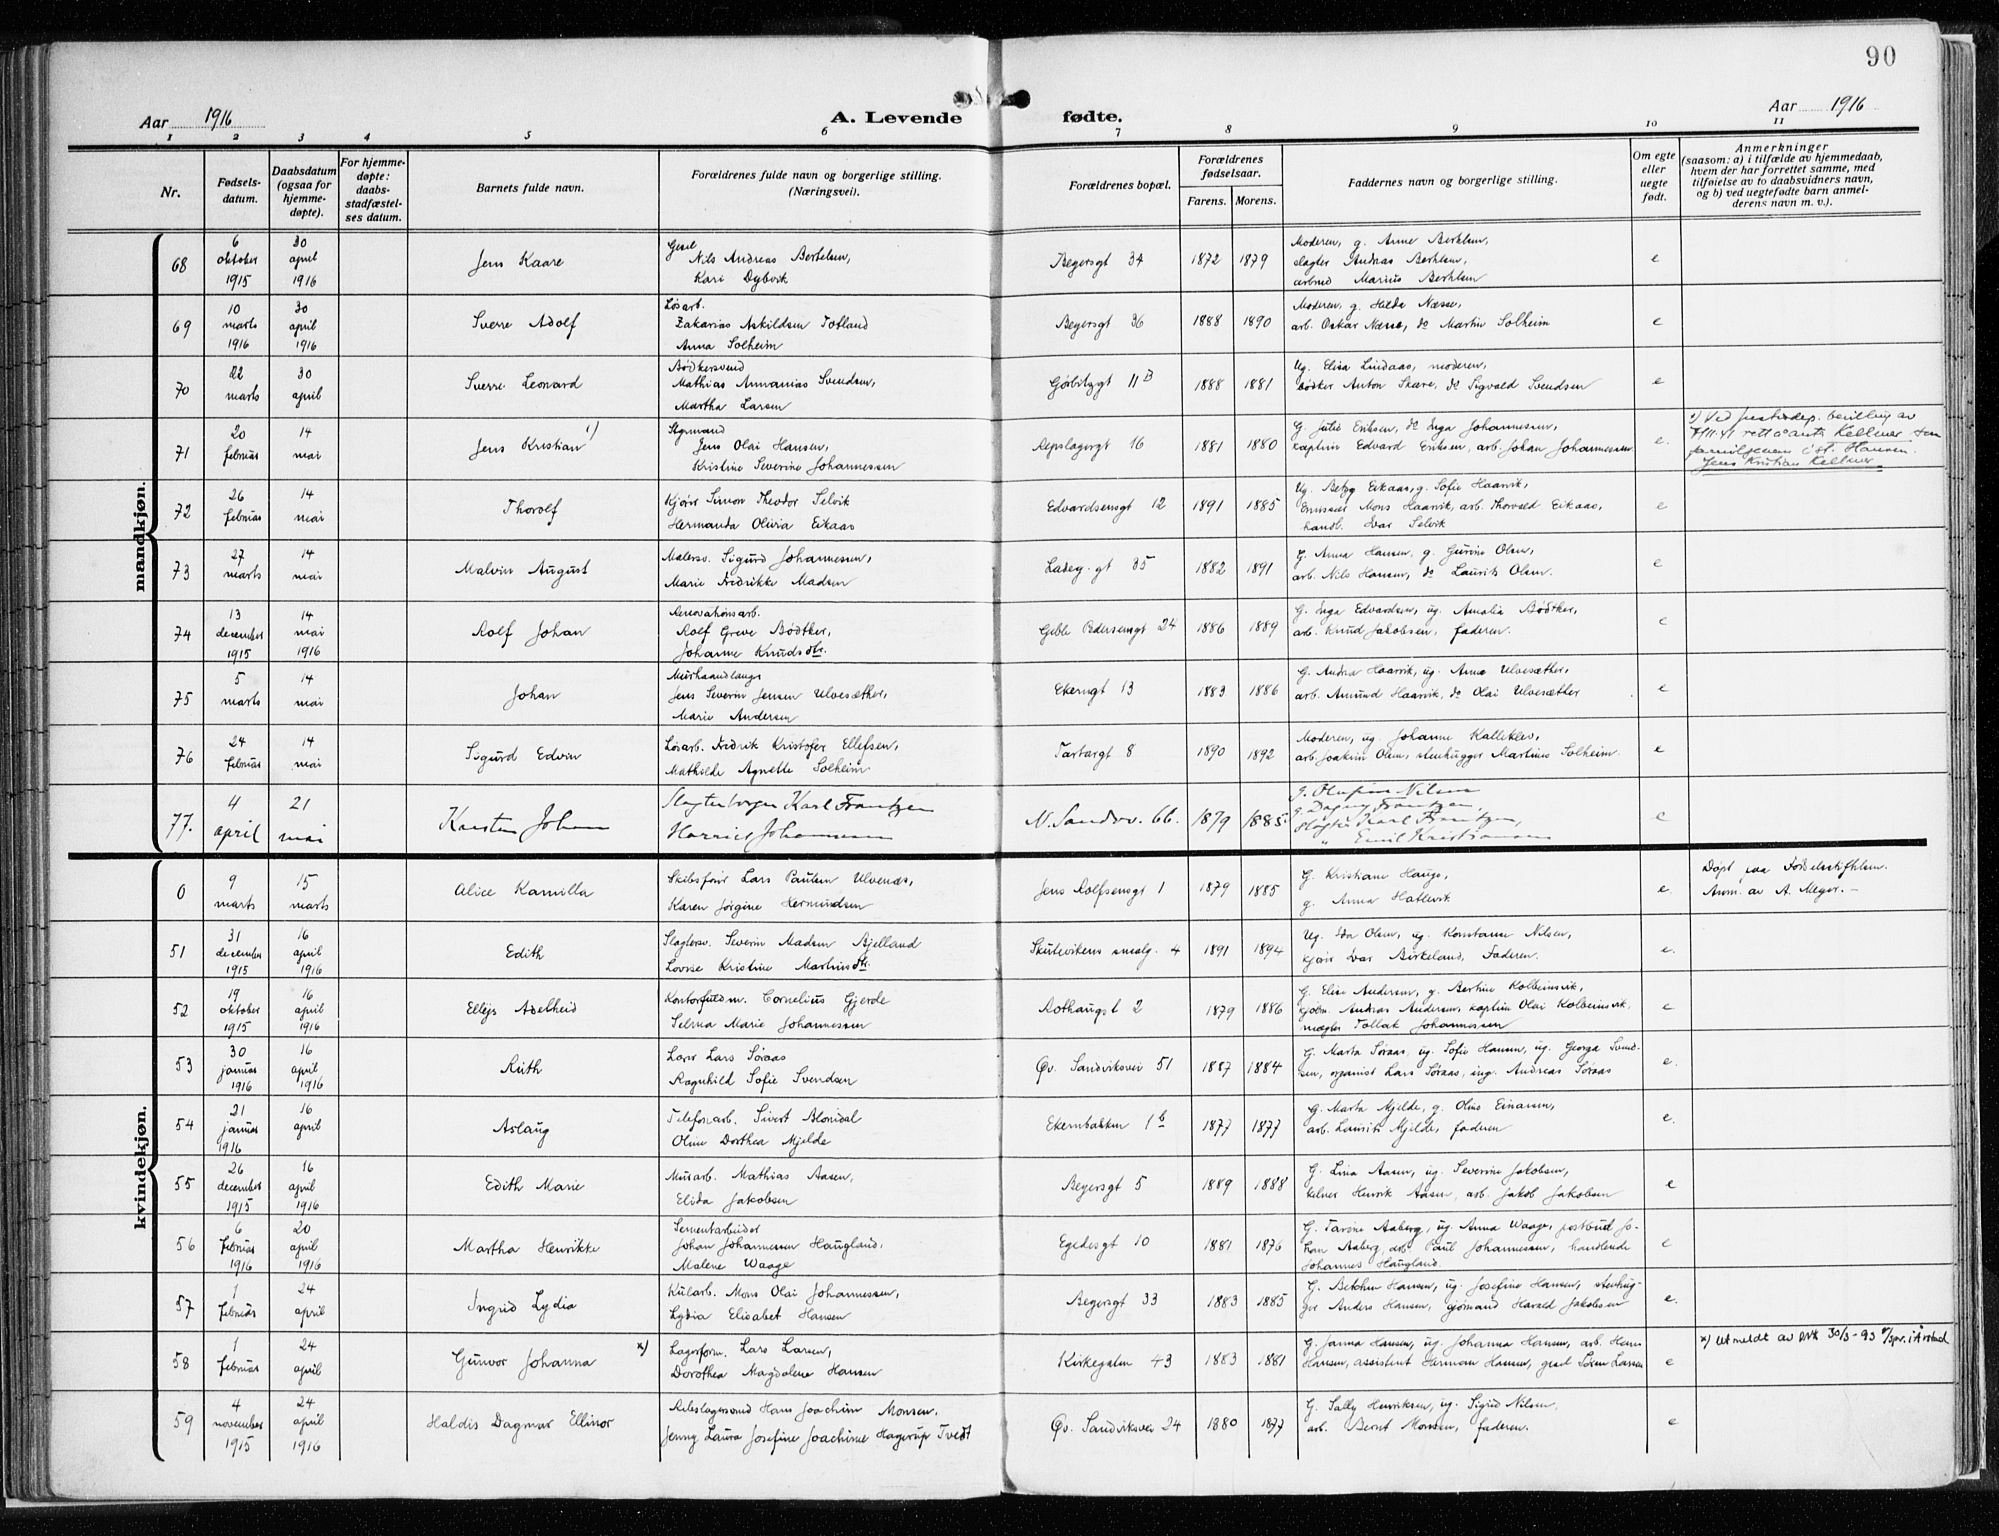 90
Aar 1916
A. Levende fødte.
Aar 1916
1 2 3 4 5 6 7 8 9 10 11
Nr.
Fødsels-
datum.
Daabsdatum
(ogsaa for
hjemme-
døpte).
For hjemme-
døpte:
daabs-
stadfæstel-
ses datum.
Barnets fulde navn.
Forældrenes fulde navn og borgerlige stilling.
(Næringsvei).
Forældrenes bopæl.
Forældrenes
fødselsaar.
Farens. Morens.
Faddernes navn og borgerlige stilling.
Om egte
eller
uegte
født.
Anmerkninger
(saasom: a) i tilfælde av hjemmedaab,
hvem der har forrettet samme, med
tilføielse av to daabsvidners navn,
og b) ved uegtefødte barn anmel-
derens navn m. v.).
mandkjøn.
68
6
oktober
1915
30
april
1916
Jens Kaare
Nils Andreas Bertelsen,
Kari Dybvik
Beyersgt 34
1872 1879
Moderen, g. Anne Bertelsen,
slagter Andreas Bertelsen,
Marius Bertelsen
e
69
10
marts
1916
30
april
1916
Sverre Adolf
Løsarb.
Zakarias Askildsen Totland
Anna Solheim
Beyersgt 36
1888 1890
Moderen, g. Hilda Næsse,
arb. Oskar Næsse, do Martin Solheim
e
70
22
marts
30
april
Sverre Leonard
Bødkersvend
Mathias Annanias Svendsen,
Martha Larsen
Gørbitzgt 11 B
1888 1881
Ug. Elisa Lindaas, moderen,
bødker Anton Skare, do Sigvald Svendsen
e
71
20
februar
14
mai
Jens Kristian 1)
Styrmand
Jens Olai Hansen,
Kristine Severine Johannessen
Repslagergt 16
1881 1880
G. Julie Eriksen, do Inga Johannessen,
kaptein Edvard Eriksen, arb. Johan Johannessen
e.
1) Ved justisdep. bevilling av
7/11.41 rett t. å anta Kellner som
familienavn i st. f. Hansen.
Jens Kristian Kellner
72
26
februar
14
mai
Thorolf
Kjører Simon Theodor Selvik
Hermanda Olivia Eikaas
Edvardsensgt 12
1891 1885
Ug. Betzy Eikaas, g. Sofie Haarvik,
Mons Haarvik, arb. Thorvald Eikaas,
handl. Ivar Selvik
e
73
27
marts
14
mai
Malvin August
Malersv. Sigurd Johannessen,
Marie Fredrikke Madsen
Ladeg.gt 35
1882 1891
G. Anna Hansen, g. Gurine Olsen,
arb. Nils Hansen, do Laurits Olsen.
e
74
13
december
1915
14
mai
1916
Rolf Johan
Renovationsarb.
Rolf Greve Bødtker,
Johanne Knudsdtr.
Geble Pedersensgt 24
1886 1889
G. Inga Edvardsen, ug. Amalia Bødtker,
arb. Knud Jakobsen, faderen.
e
75
5
marts
14
mai
Johan
Murhaandlanger
Jens Severin Jensen Ulvesæther,
Marie Andersen
Ekerngt 13
1883 1886
G. Andrea Haarvik, ug. Anna Ulvesæther,
arb. Amund Haarvik, do Olai Ulvesæther
e
76
24
februar
14
mai
Sigurd Edvin
Løsarb. Fredrik Kristofer Ellefsen,
Mathilde Agnette Solheim
Tartargt 8
1890 1892
Moderen, ug. Johanne Kalleklev,
arb. Joakim Olsen, stenhugger Martinus Solheim.
e
77.
4
april
21
mai
Karsten Johan
Slagterborger Karl Frantzen
Harriet Johannessen
N. Sandv. 66.
1879 1885.
g. Olufine Nilsen
g. Dagny Frantzen,
Slagter Karl Frantzen,
" Emil Kristiansen
e
kvindekjøn.
0
9
marts
15
marts
Alice Kamilla
Skibsfører Lars Paulsen Ulvenæs,
Karen Jørgine Hermundsen
Jens Rolfsensgt 1
1879 1885
G. Kristiane Hauge,
g. Anna Hatlevik
e.
Døpt paa Fødselsstiftelsen.
Anm. av A. Meyer. -
51
31
december
1915
16
april
1916
Edith
Slagtersv. Severin Madsen Bjelland
Lovise Kristine Martinsdtr.
Skutevikens smalg. 4
1891 1894
Ug. Ida Olsen, ug. Konstanse Nilsen,
kjører Ivar Birkeland, Faderen.
e.
52
19
oktober
1915
16
april
1916
Elleys Adelheid
Kontorfuldm. Cornelius Gjerde
Selma Marie Johannessen
Rothaugst 2
1879 1886
G. Elise Andersen, g. Berthine Kolbeinsvik,
Andreas Andersen, kaptein Olai Kolbeinsvik,
mægler Tollak Johannessen
e
53
30
januar
1916
16
april
1916
Ruth
Lærer Lars Søraas
Ragnhild Sofie Svendsen
Øv. Sandviksvei 51
1887 1884
G. Marta Søraas, ug. Sofie Hansen, ug. Georga Svend-
sen, organist Lars Søraas, ing. Andreas Søraas
e.
54
21
januar
1916
16
april
Aslaug
Telefonarb. Sivert Blomdal
Oline Dorthea Mjelde
Ekernbakken 1 b
1877 1877
G. Marta Mjelde, g. Oline Einarsen,
arb. Laurits Mjelde, faderen
e.
55
26
december
1915
16
april
1916
Edith Marie
Murarb. Mathias Aasen,
Elida Jakobsen
Beyersgt 5
1889 1888
G. Lina Aasen, ug. Severine Jakobsen,
kelner Henrik Aasen, arb. Jakob Jakobsen
e
56
6
februar
1916
20
april
1916
Martha Henrikke
Sementarbeider
Johan Johannessen Haugland,
Malene Waage
Egedesgt 10
1881 1876
G. Tarine Aaberg, ug. Anna Waage, postbud Jo-
han Aaberg, arb. Paul Johannessen, handlende
Johannes Haugland.
e
57
1
februar
24
april
Ingrid Lydia
Kularb. Mons Olai Johannessen,
Lydia Elisabet Hansen
Beyersgt 33
1883 1885
G. Betchen Hansen, ug. Josefine Hansen, stenhug-
ger Anders Hansen, gjømand Harald Jakobsen
e.
58
1
februar
24
april
Gunvor Johanna x)
Lagerform. Lars Larsen,
Dorothea Magdalene Hansen
Kirkegaten 43
1883 1881
G. Janna Hansen, ug. Johanna Hansen, arb. Hans
Hansen, assistent Herman Hansen, Søren Larsen
e
x) Utmeldt av DNK 30/3-93
59
4
november
1915
24
april
1916
Haldis Dagmar Ellinor
Rebslagersvend Hans Joachim Monsen,
Jenny Laura Josefine Joachime Hagerup Tvedt
Øv. Sandviksvei 24
1880 1877
G. Sally Henriksen, ug. Sigrid Nilsen,
arb. Bernt Monsen, faderen.
e